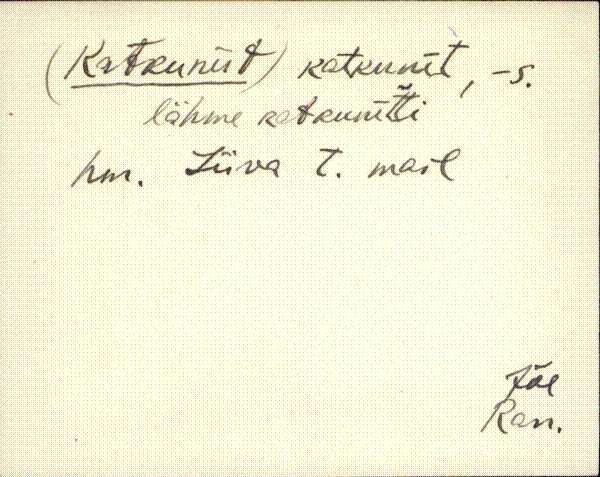 (Katkuniit) katkunit̀, -s.
lähme katkunit̆ti
hm. Liiva t. maal
Jõe
Ran.